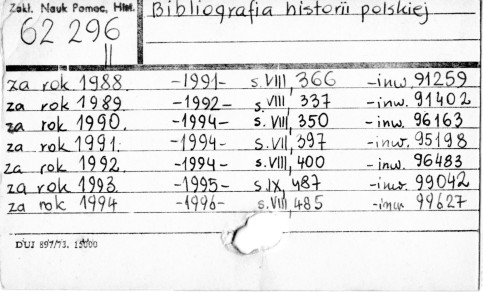 Zakł. Nauk Pomoc. Hist.
62 296
II
Bibliografia historii polskiej
za rok 1988. -1991- s. VIII, 366 -inw. 91259
za rok 1989. -1992- s. VIII, 337 -inw. 91402
za rok 1990. -1994- s. VIII, 350 -inw. 96163
za rok 1991. -1994- s. VII, 397 -inw. 95198
za rok 1992. -1994- s. VIII, 400 -inw. 96483
za rok 1993. -1995- s. IX, 487 -inw. 99042
za rok 1994 -1996- s. VIII, 485 -inw. 99627
DUJ 897/73. 15000